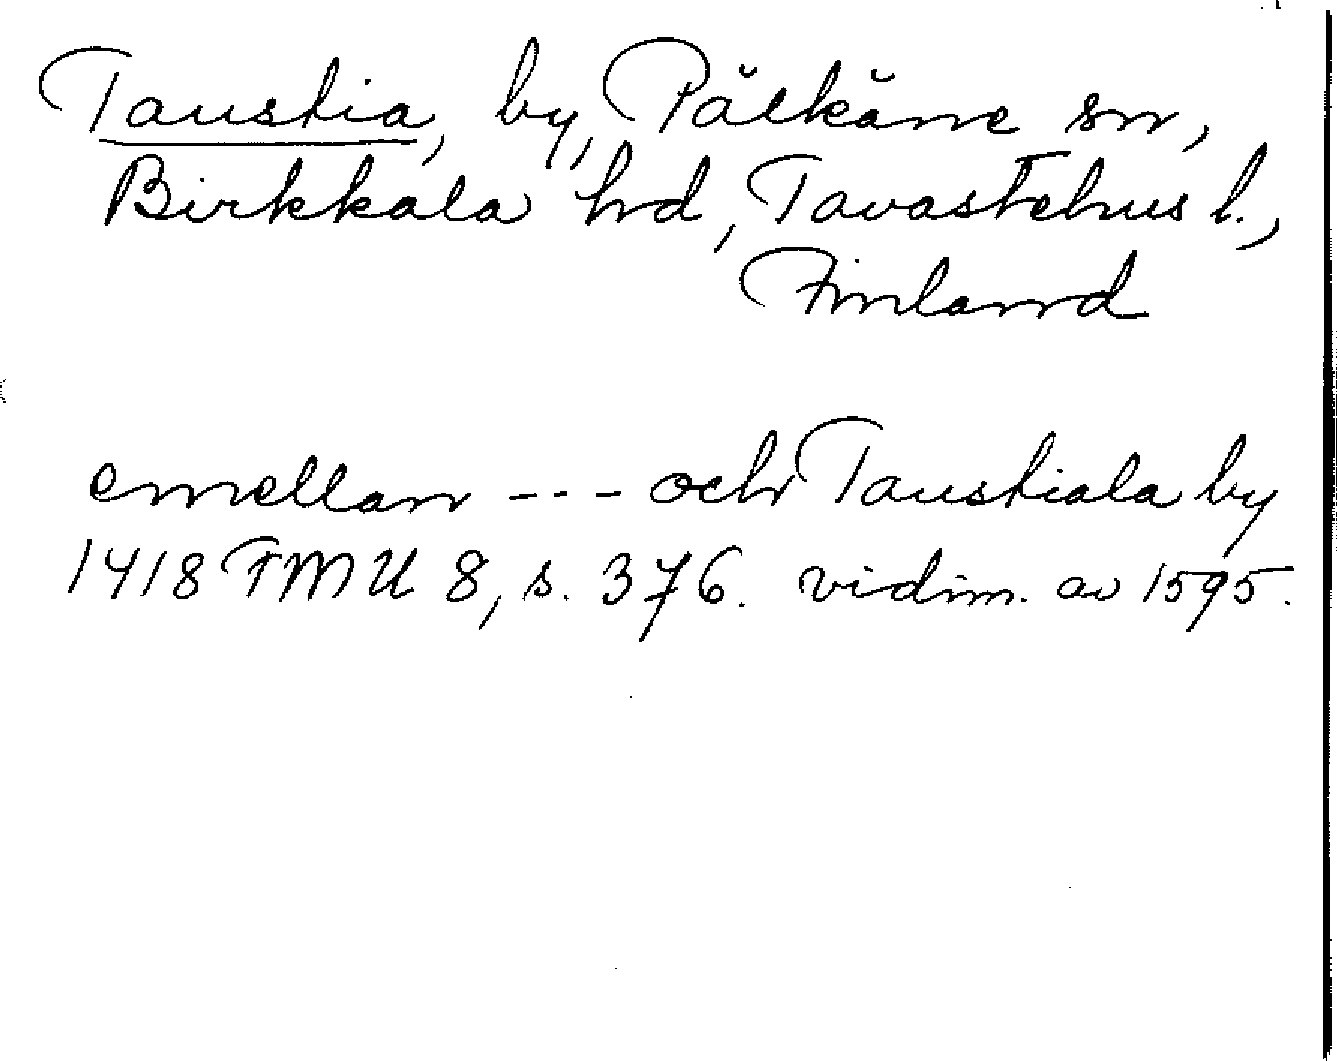 Taustia, by, Pälkäne sn,
Birkkala hd, Tavastehus l.,
Finland
emellan --- och Taustiala by
1418 FMU 8, s. 376. vidim. av 1595.